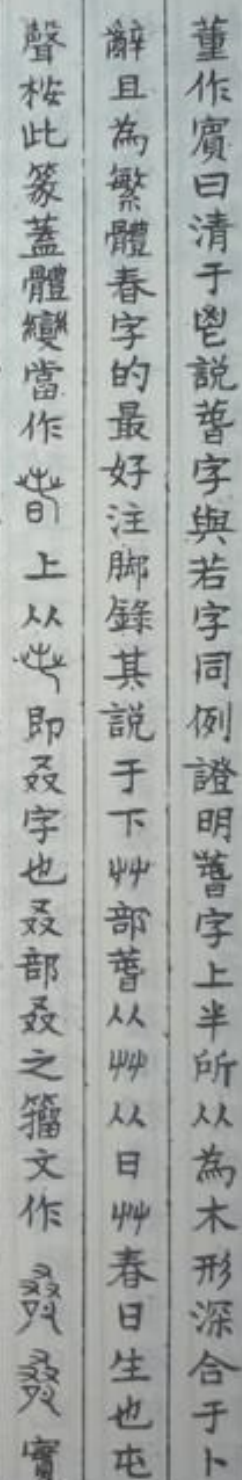 董作賓曰清于鬯說萅字與若字同例證明萅字上半所从為木形深合于卜
辭且為繁體春字的最好注脚錄其說于下艸部萅从艸从日艸春日生也屯
聲桉此篆蓋體變當作上从即叒字也叒部叒之籀文作實